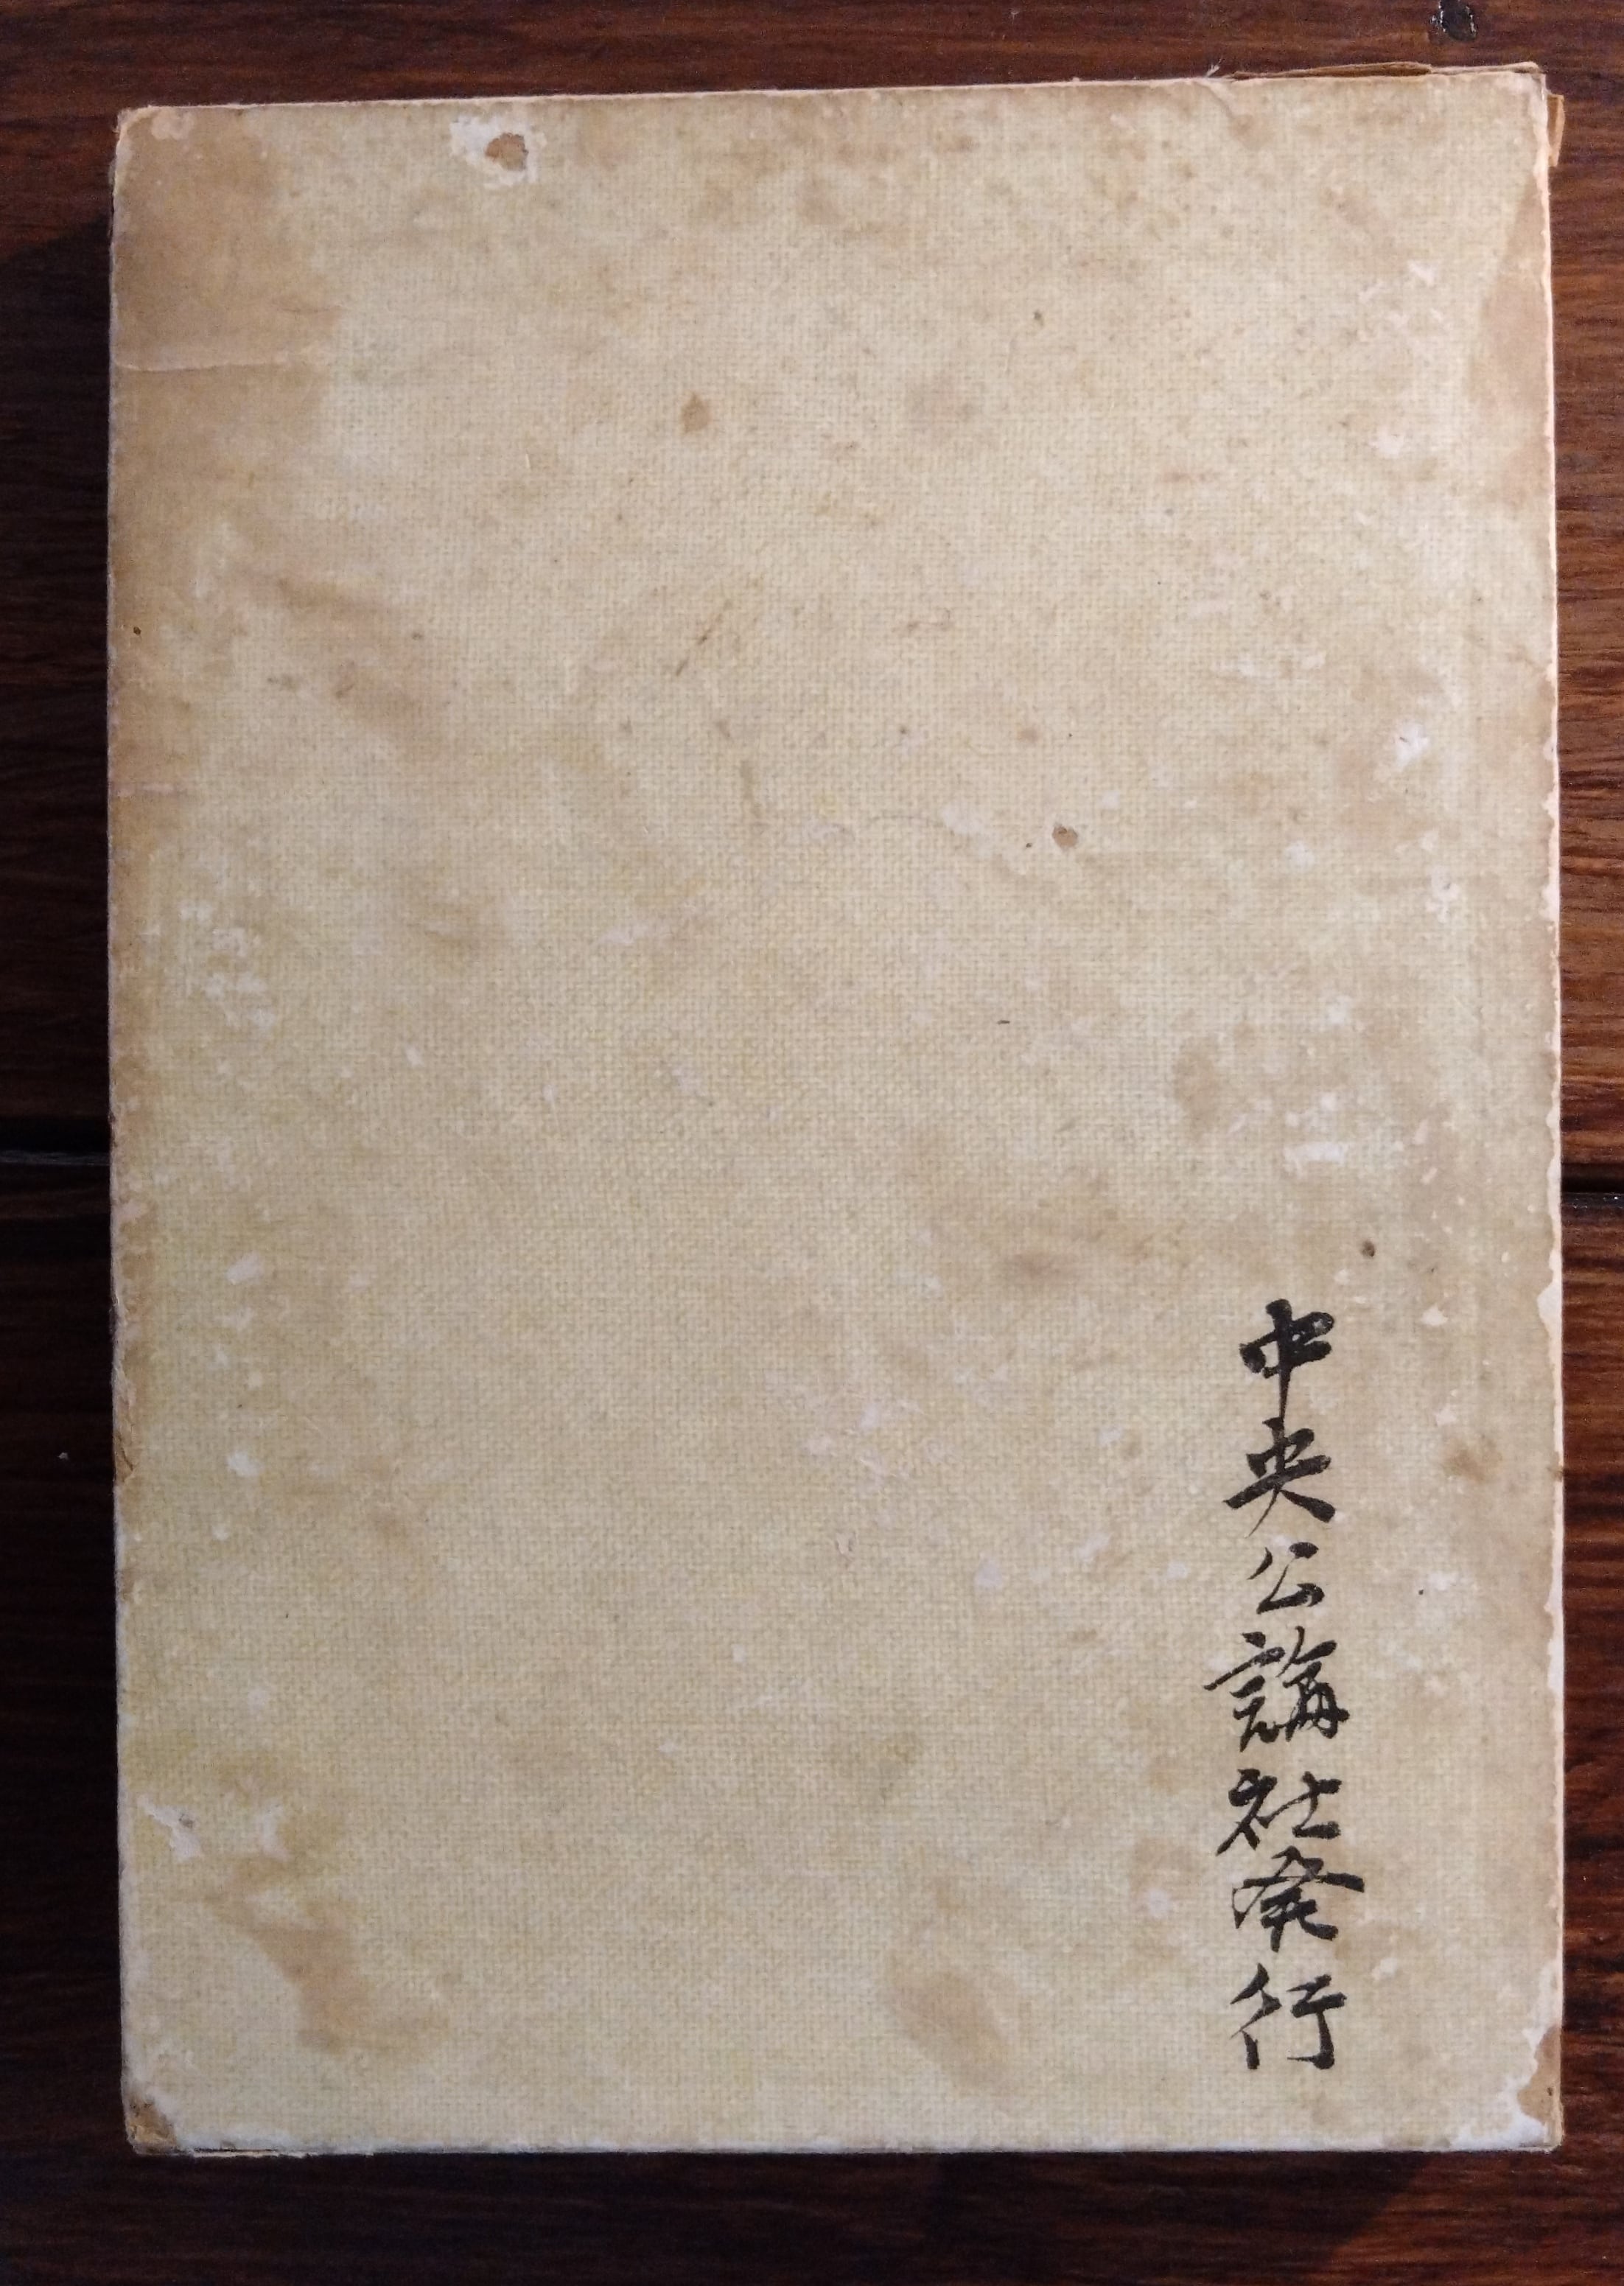 中央公論社発行